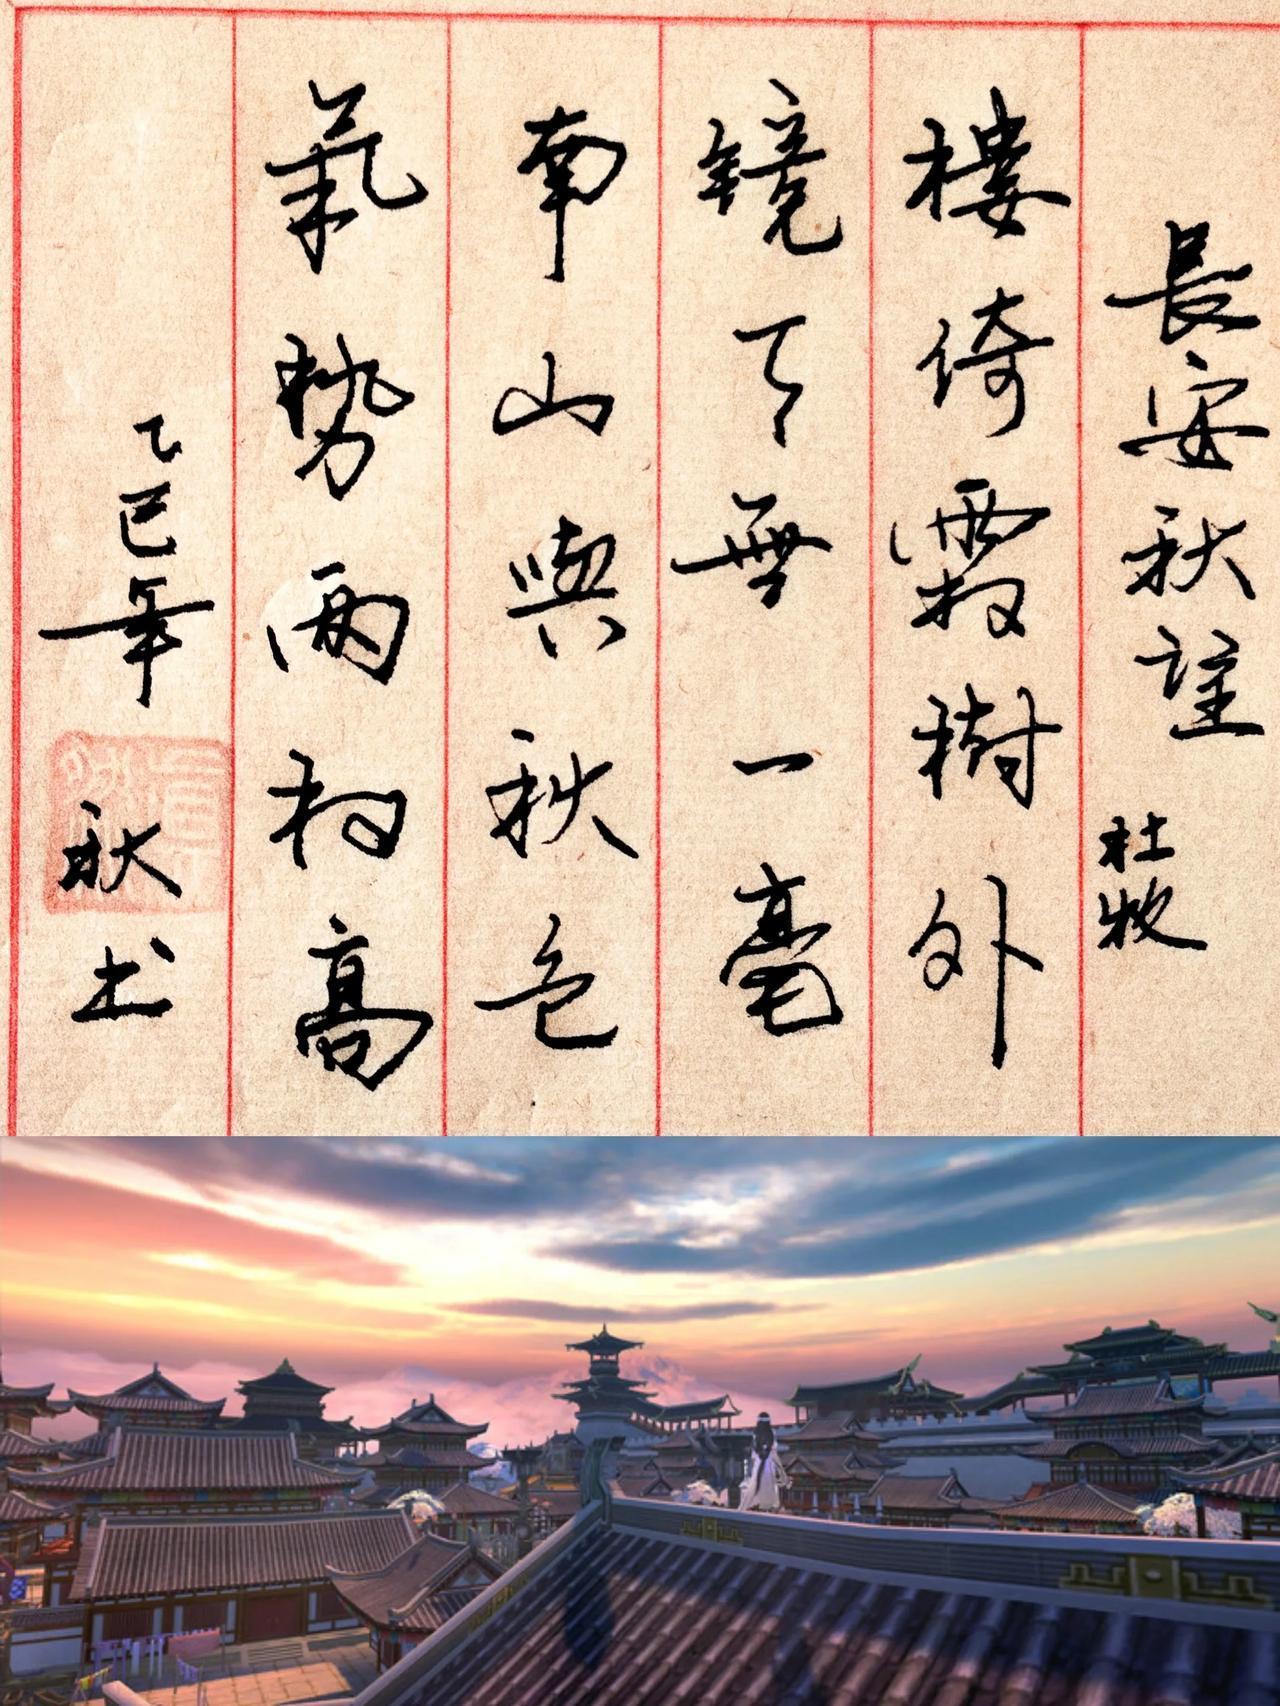 長安秋望 杜牧
樓倚霜樹外
鏡天無一毫
南山與秋色
氣勢兩相高
乙巳年 秋书